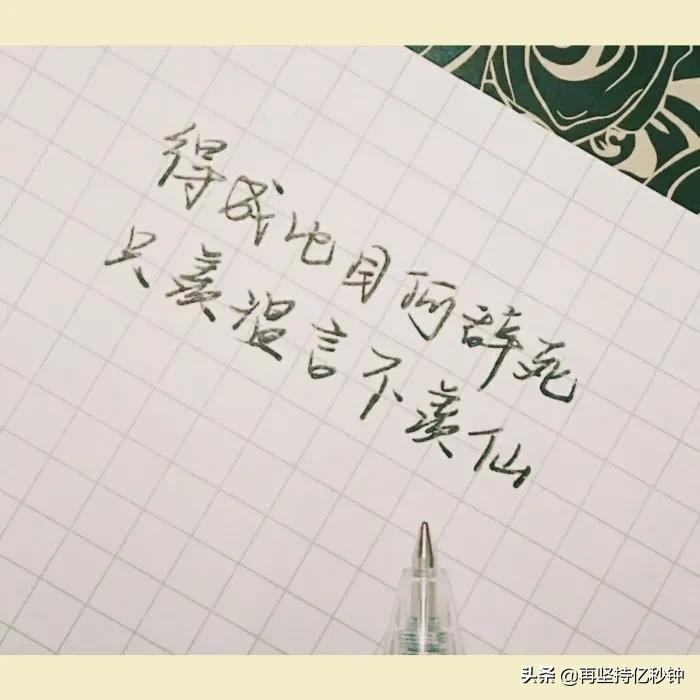 得成比目阿辞死
只羡温言不羡仙
头条 @再坚持亿秒钟